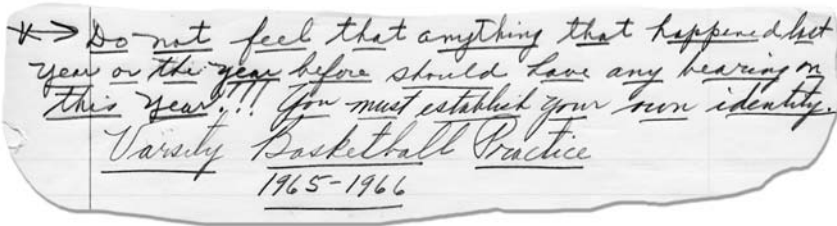 * → Do not feel that anything that happened last
year or the year before should have any bearing on
this year!!! You must establish your own identity.
Varsity Basketball Practice
1965-1966